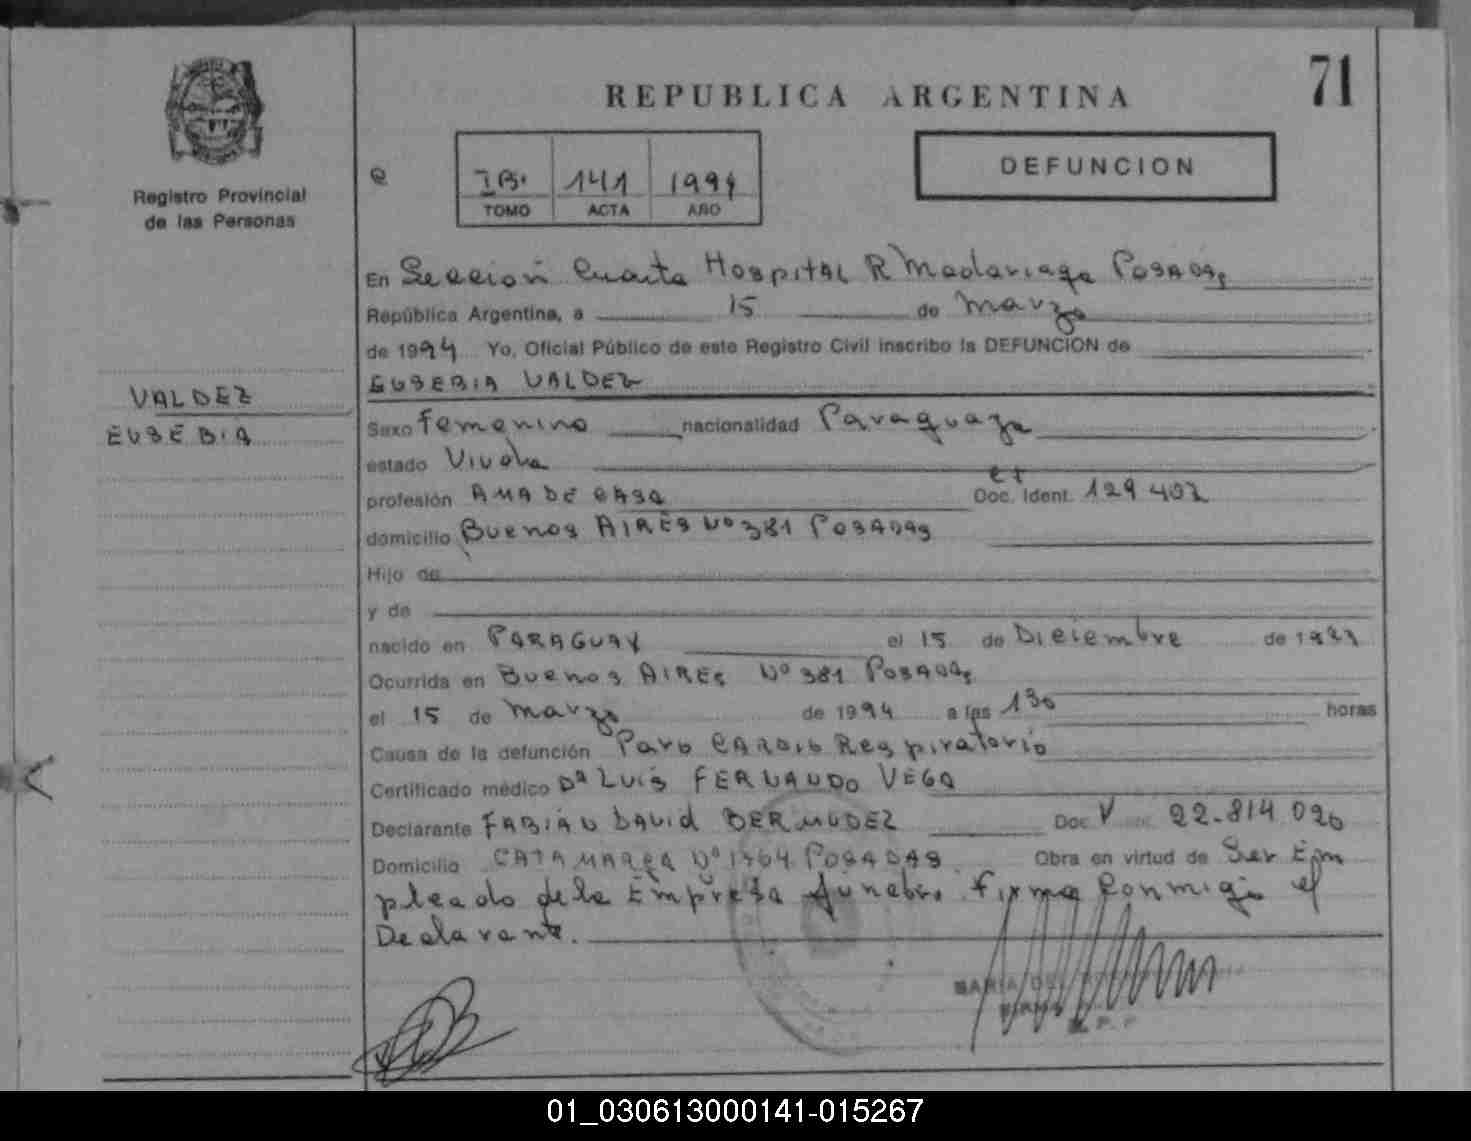 71
REPUBLICA ARGENTINA
Registro Provincial
de las Personas
IB. 141 1994
TOMO ACTA AÑO
DEFUNCION
VALDEZ
EUSEBIA
En Sección Cuarta Hospital R Madariaga Posadas
República Argentina, a 15 de Marzo
de 1994 Yo, Oficial Público de este Registro Civil inscribo la DEFUNCION de
EUSEBIA VALDEZ
Sexo Femenino nacionalidad Paraguaya
estado Viuda
profesión AMA DE CASA Doc. Ident. 129 402
domicilio Buenos AIRES Nº 381 POSADAS
Hijo de
y de
nacido en PARAGUAY el 15 de Diciembre de
Ocurrida en Buenos AIRES Nº 381 POSADAS
el 15 de Marzo de 1994 a las 130 horas
Causa de la defunción Paro CARDIO Respiratorio
Certificado médico Dº LUIS FERNANDO VEGA
Declarante FABIAN DAVID BERMUDEZ Doc 22.814.020
Domicilio CATAMARCA Nº 1764 POSADAS Obra en virtud de Ser Em
pleado de la Empresa funebre. Firma Conmigo el
Declarante.
MARIA DEL
01_030613000141-015267